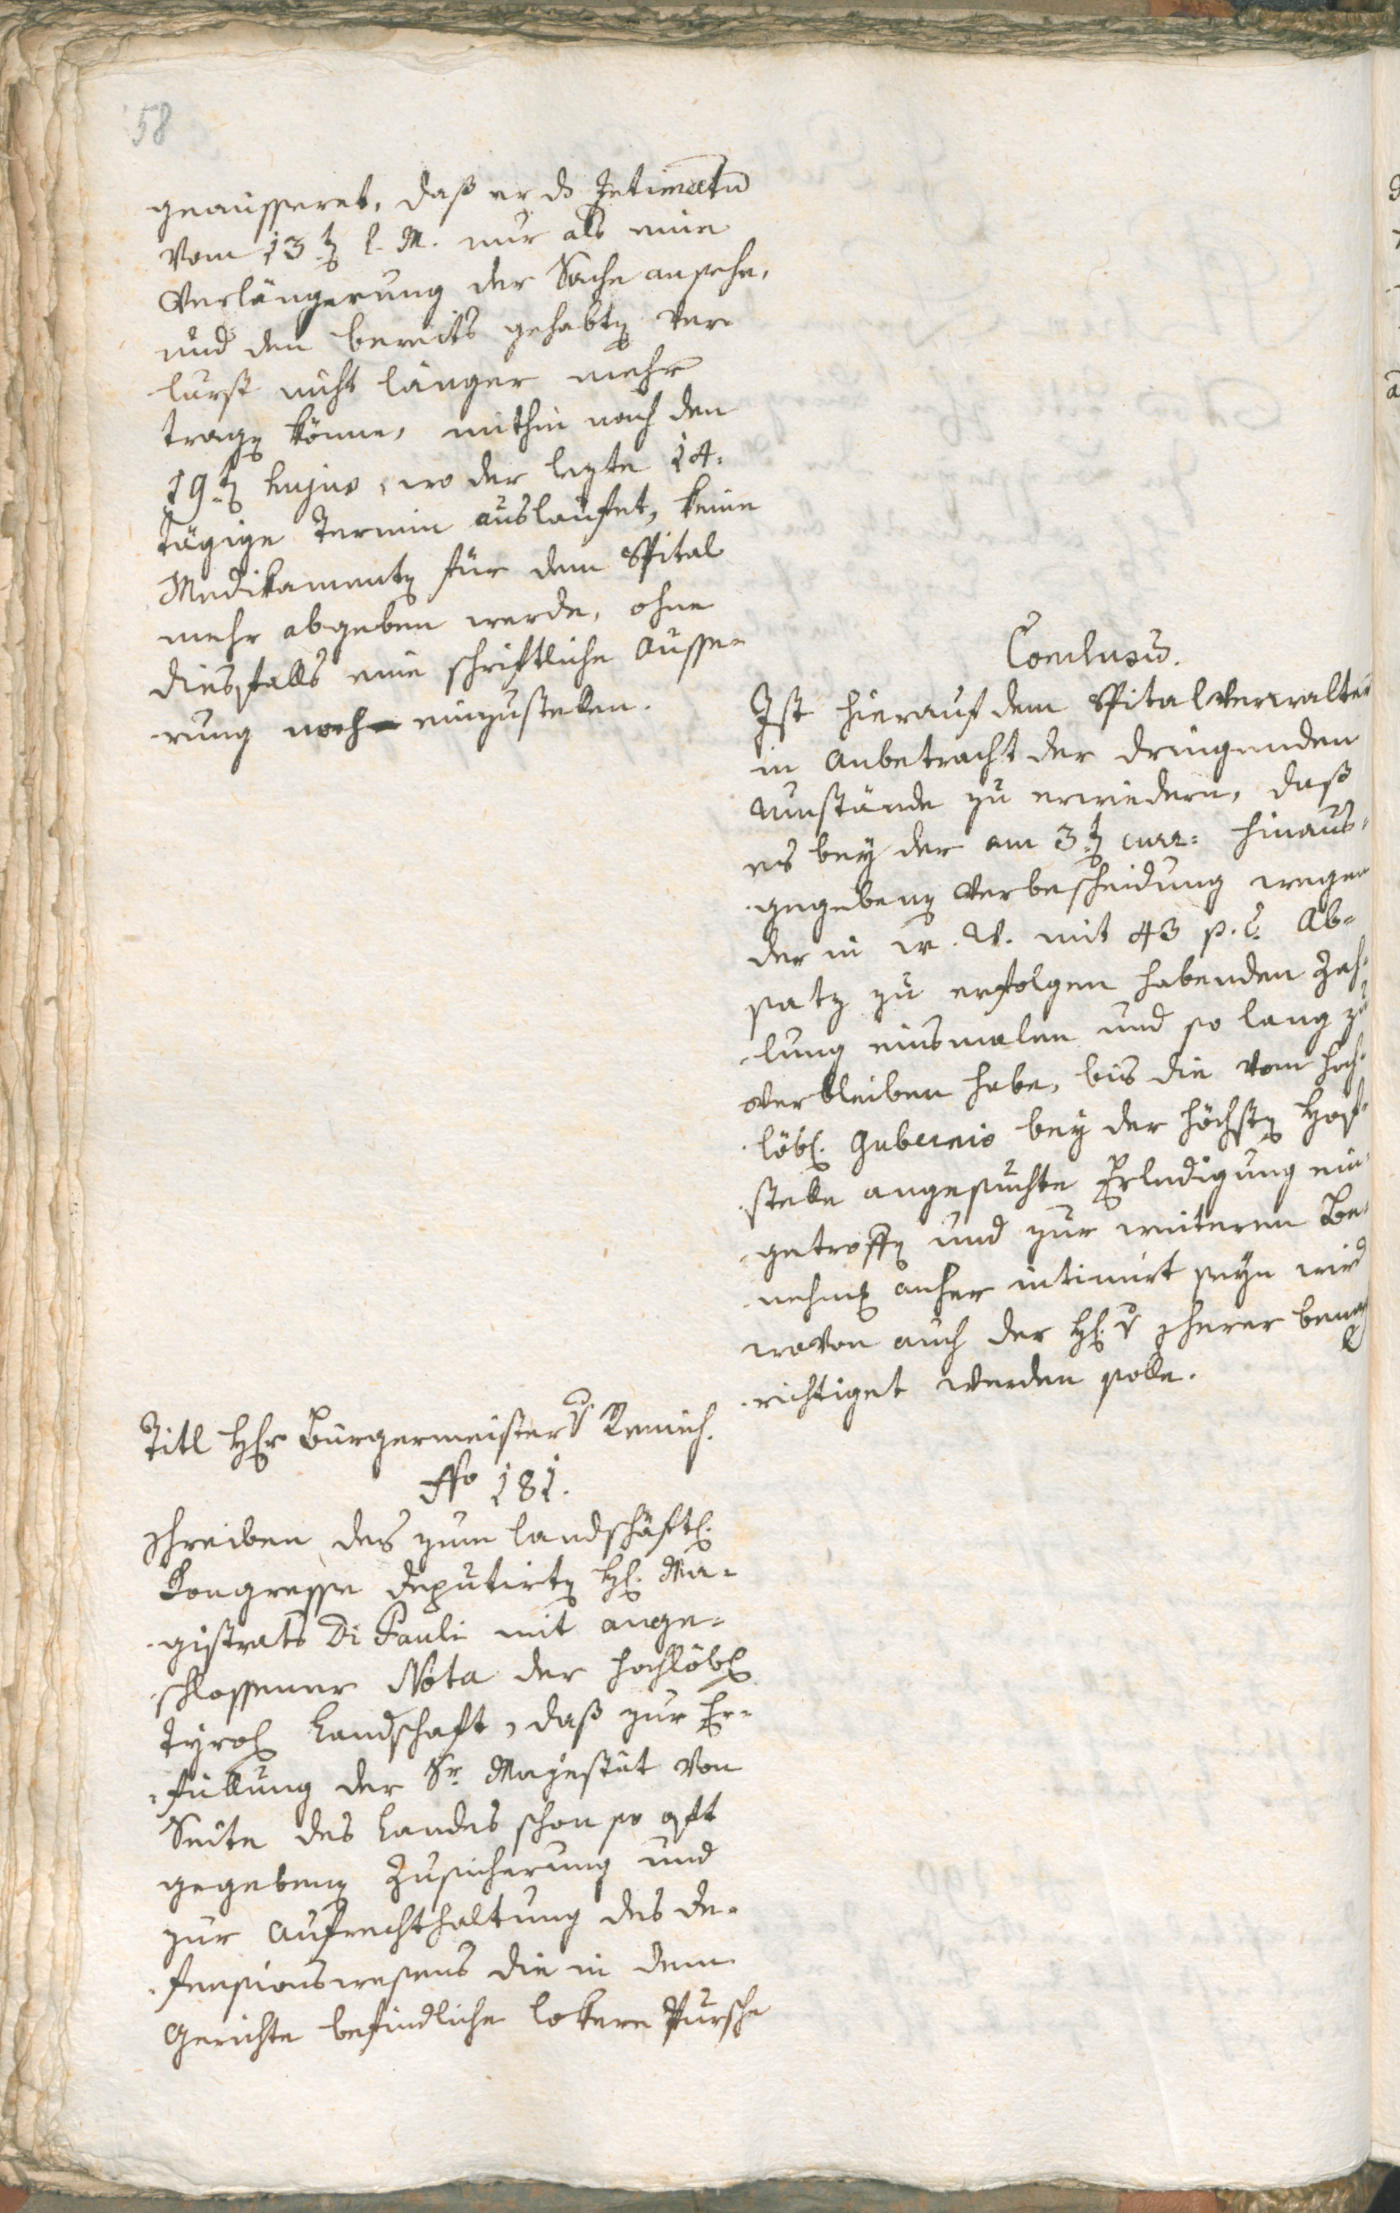 58
geäusseret, daß er ds Intimatum
vom 13t. l. M. nur als eine
Verlängerung der Sache ansehe,
und den bereits gehabten Ver¬
lurst nicht länger mehr
tragen könne, mithin nach den
19t. hujus, wo der lezte 14¬
tägige Termin auslaufet, keine
Medikamenten für dem Spital
mehr abgeben werde, ohne
diesfalls eine schriftliche Äusse¬
rung noch einzustellen.
Conclusum.
Ist hierauf dem Spitalverwalter
in Anbetracht der dringenden
Umstände zu erwiedern, daß
es bey der am 3t. curr: hinaus¬
gegebenen Verbescheidung wegen
der in W. W. mit 43 p. C. Ab¬
satz zu erfolgen habenden Zah¬
lung einsmalen und so lang zu
verbleiben habe, bis die vom hoch¬
löbl. Gubernio bey der höchsten Hof¬
stelle angesuchte Erledigung ein¬
getroffen und zur weiteren Be¬
nehmen anher intimirt seyn wird
wovon auch der H. v. benach
richtiget werden solle.
Titl Hr Bürgermeister v.
No 181.
Schreiben des zum landschäftl.
Kongresse deputirten H. Ma¬
gistrats Di Pauli mit ange¬
schlossener Nota der hochlöbl.
tyrol. Landschaft, daß zur Er¬
füllung der Sr. Majestät von
Seite des Landes schon so oft
gegebenen Zusicherung und
zur Aufrechthaltung des De¬
fensionswesens die in dem
Gerichte befindliche lokere Pursche